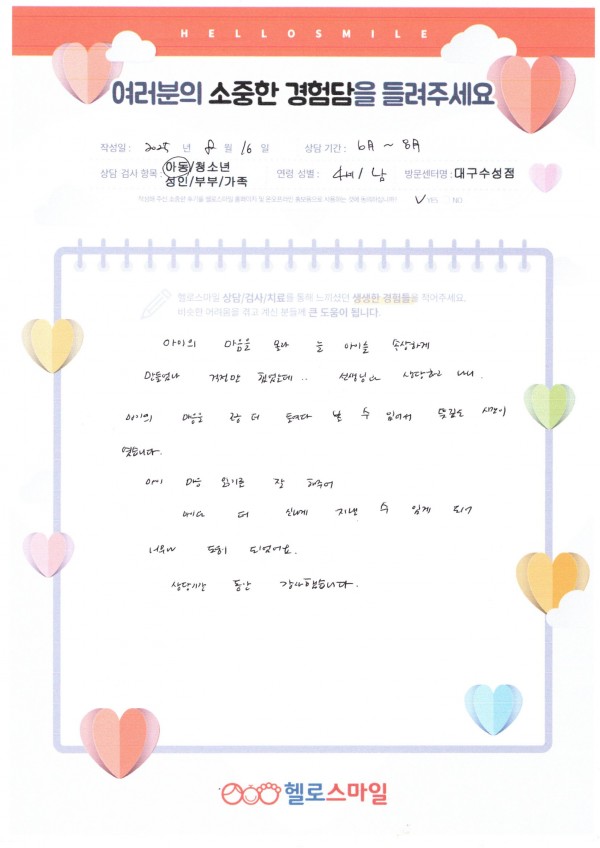 HELLOSMILE
여러분의 소중한 경험담을 들려주세요
작성일 : 2025 년 8 월 16 일 상담 기간 : 6月 ~ 8月
상담 검사 항목 : 아동/청소년 연령 성별 : 4세 / 남 방문센터명 : 대구수성점
성인/부부/가족
작성해 주신 소중한 후기를 헬로스마일 홈페이지 및 온오프라인 홍보용으로 사용하는 것에 동의하십니까? ✓YES NO
헬로스마일 상담/검사/치료를 통해 느끼셨던 생생한 경험들을 적어주세요.
비슷한 어려움을 겪고 계신 분들에게 큰 도움이 됩니다.
아이의 마음을 몰라 늘 아이를 속상하게
만들었나 걱정만 했었는데.. 선생님과 상담하고 나니.
아이의 마음을 좀 더 볼 수 있어서 뜻깊은 시간이
였습니다.
아이 마음 읽기를 잘 해주어
더 신나게 지낼 수 있게 되서
너무나 도움 되었어요.
상담기간 동안 감사했습니다.
헬로스마일